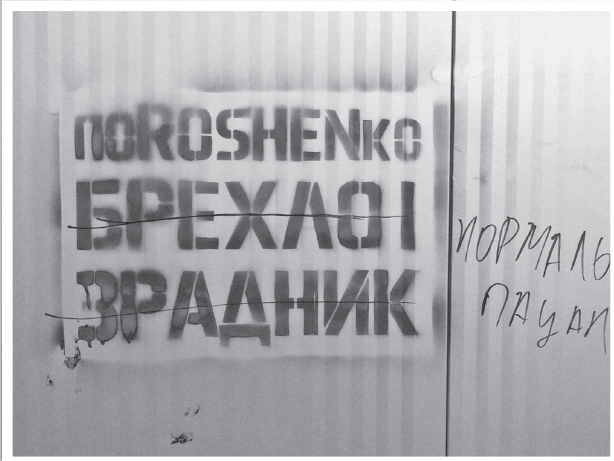 ПОROSHENKO
БРЕХЛО І
ЗРАДНИК
НОРМАЛЬ
ПАЦАН